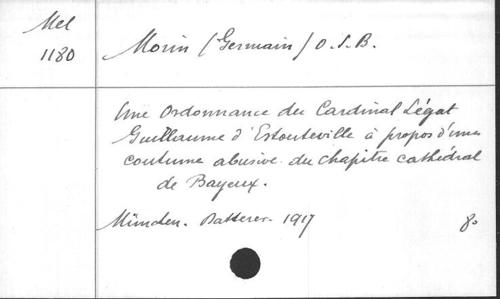 Mel
1180
Morin (Germain) O.S.B.
Une Ordonnance du Cardinal Légat
Guillaume d'Estouteville à propos d'une
coutume abusive du chapitre cathédral
de Bayeux.
München. Datterer. 1917
8º